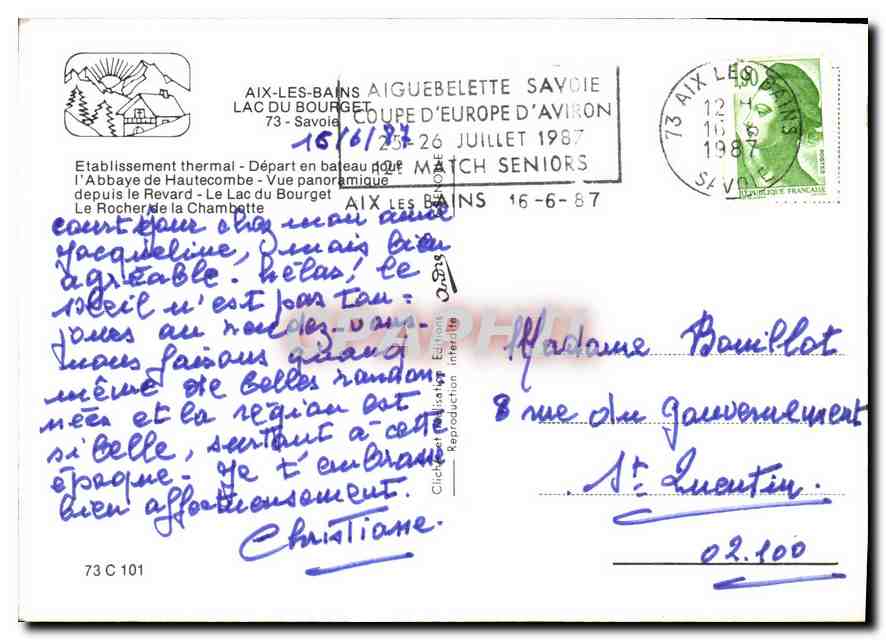 AIX-LES-BAINS
LAC DU BOURGET
73 - Savoie
15/6/87
Etablissement thermal - Départ en bateau pour
l'Abbaye de Hautecombe - Vue panoramique
depuis le Revard - Le Lac du Bourget
Le Rocher de la Chambotte
AIGUEBELETTE SAVOIE
COUPE D'EUROPE D'AVIRON
25-26 JUILLET 1987
12e MATCH SENIORS
AIX LES BAINS 16-6-87
73 AIX LES BAINS
12 H
16-6
1987
SAVOIE
1,90
POSTES
REPUBLIQUE FRANÇAISE
court séjour chez mon amie
Jacqueline, mais bien
agréable. hélas! le
soleil n'est pas tou-
jours au rendez-vous.
nous faisons quand
même de belles randon-
nées et la région est
si belle, surtout à cette
époque. Je t'embrasse
bien affectueusement.
Christiane.
73 C 101
Clichés et Réalisation Editions
Reproduction interdite
André
GRENOBLE
CPAPHIL
Madame Bouillot
8 rue du Gouvernement
St Quentin.
02.100